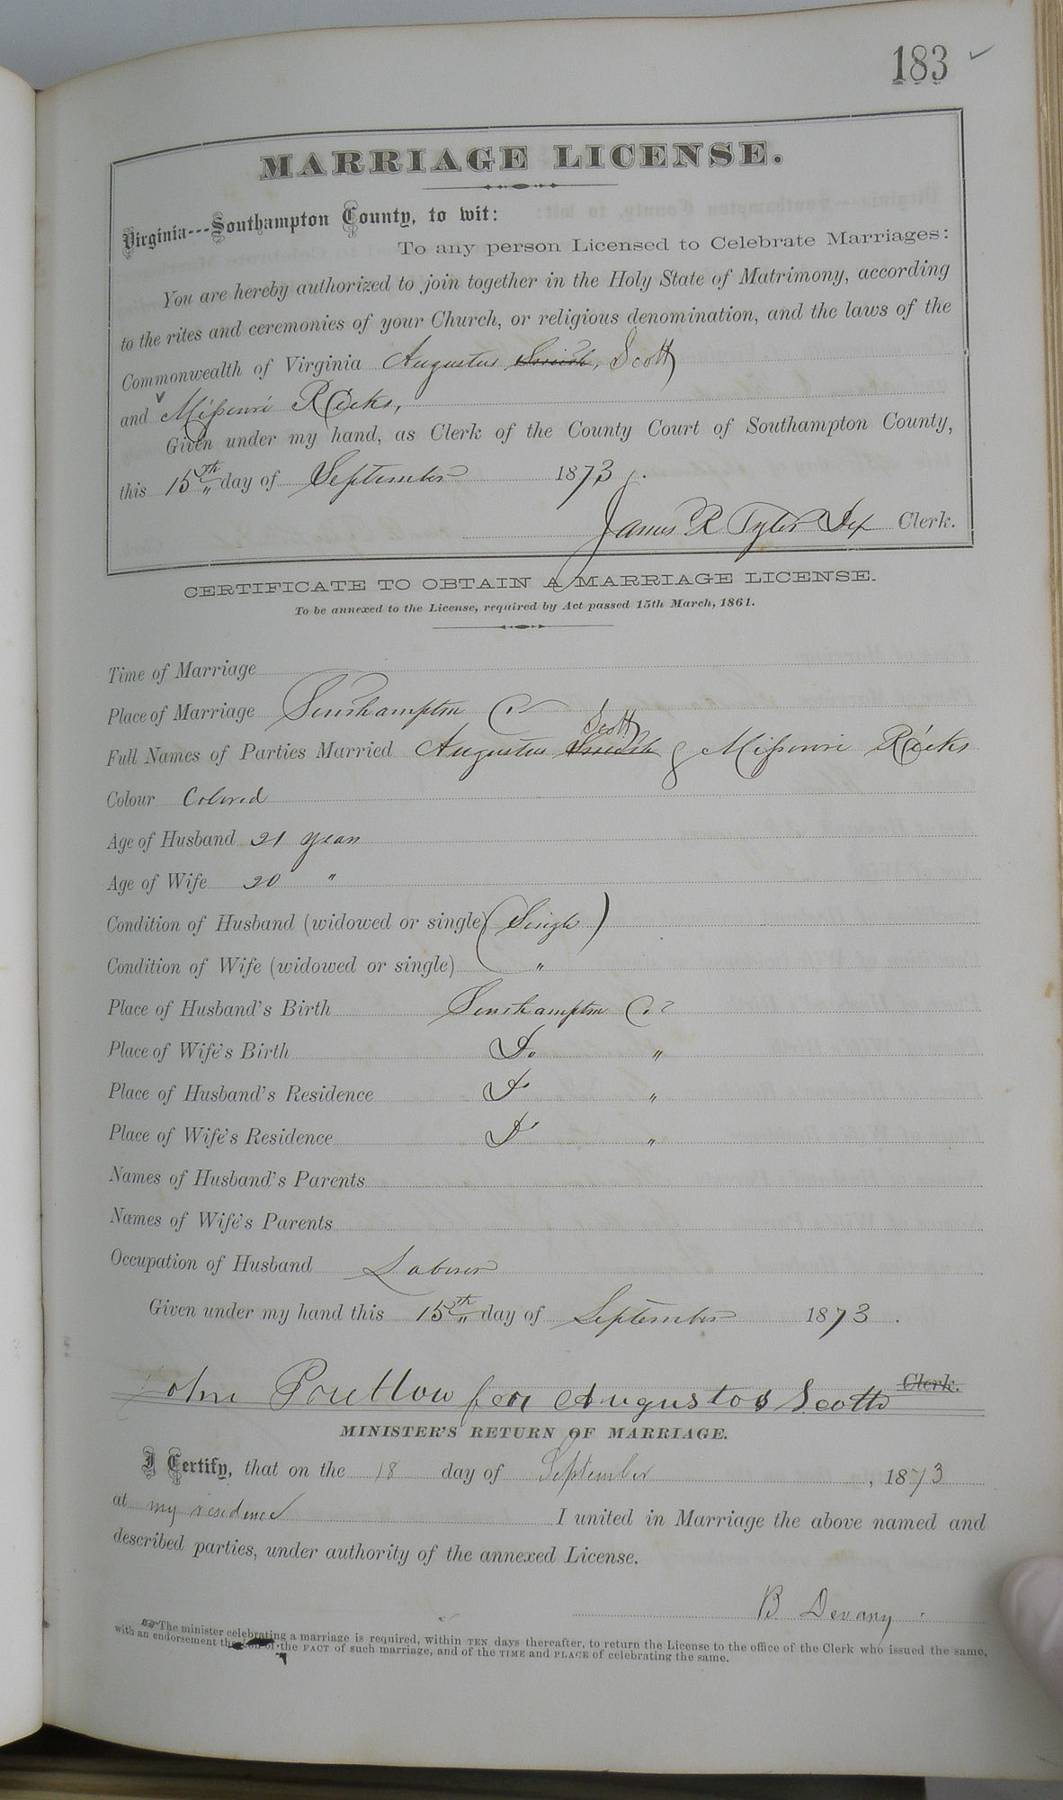 183
MARRIAGE LICENSE.
Virginia---Southampton County, to wit:
To any person Licensed to Celebrate Marriages:
You are hereby authorized to join together in the Holy State of Matrimony, according
to the rites and ceremonies of your Church, or religious denomination, and the laws of the
Commonwealth of Virginia Augustus Smith, Scott
and Missouri Ricks,
Given under my hand, as Clerk of the County Court of Southampton County,
this 15th day of September 1873.
James R Tyler Clerk.
CERTIFICATE TO OBTAIN A MARRIAGE LICENSE.
To be annexed to the License, required by Act passed 15th March, 1861.
Time of Marriage
Place of Marriage Southampton Co
Scott
Full Names of Parties Married Augustus Smith & Missouri Ricks
Colour Colored
Age of Husband 21 years
Age of Wife 20 "
Condition of Husband (widowed or single) (Single)
Condition of Wife (widowed or single) "
Place of Husband's Birth Southampton Co
Place of Wife's Birth Do "
Place of Husband's Residence Do "
Place of Wife's Residence Do "
Names of Husband's Parents
Names of Wife's Parents
Occupation of Husband Laborer
Given under my hand this 15th day of September 1873.
John Pretlow for Augustos Scott Clerk.
MINISTER'S RETURN OF MARRIAGE.
I Certify, that on the 18 day of September, 1873
at my residence I united in Marriage the above named and
described parties, under authority of the annexed License.
B Devany
The minister celebrating a marriage is required, within TEN days thereafter, to return the License to the office of the Clerk who issued the same,
with an endorsement thereon of the FACT of such marriage, and of the TIME and PLACE of celebrating the same.